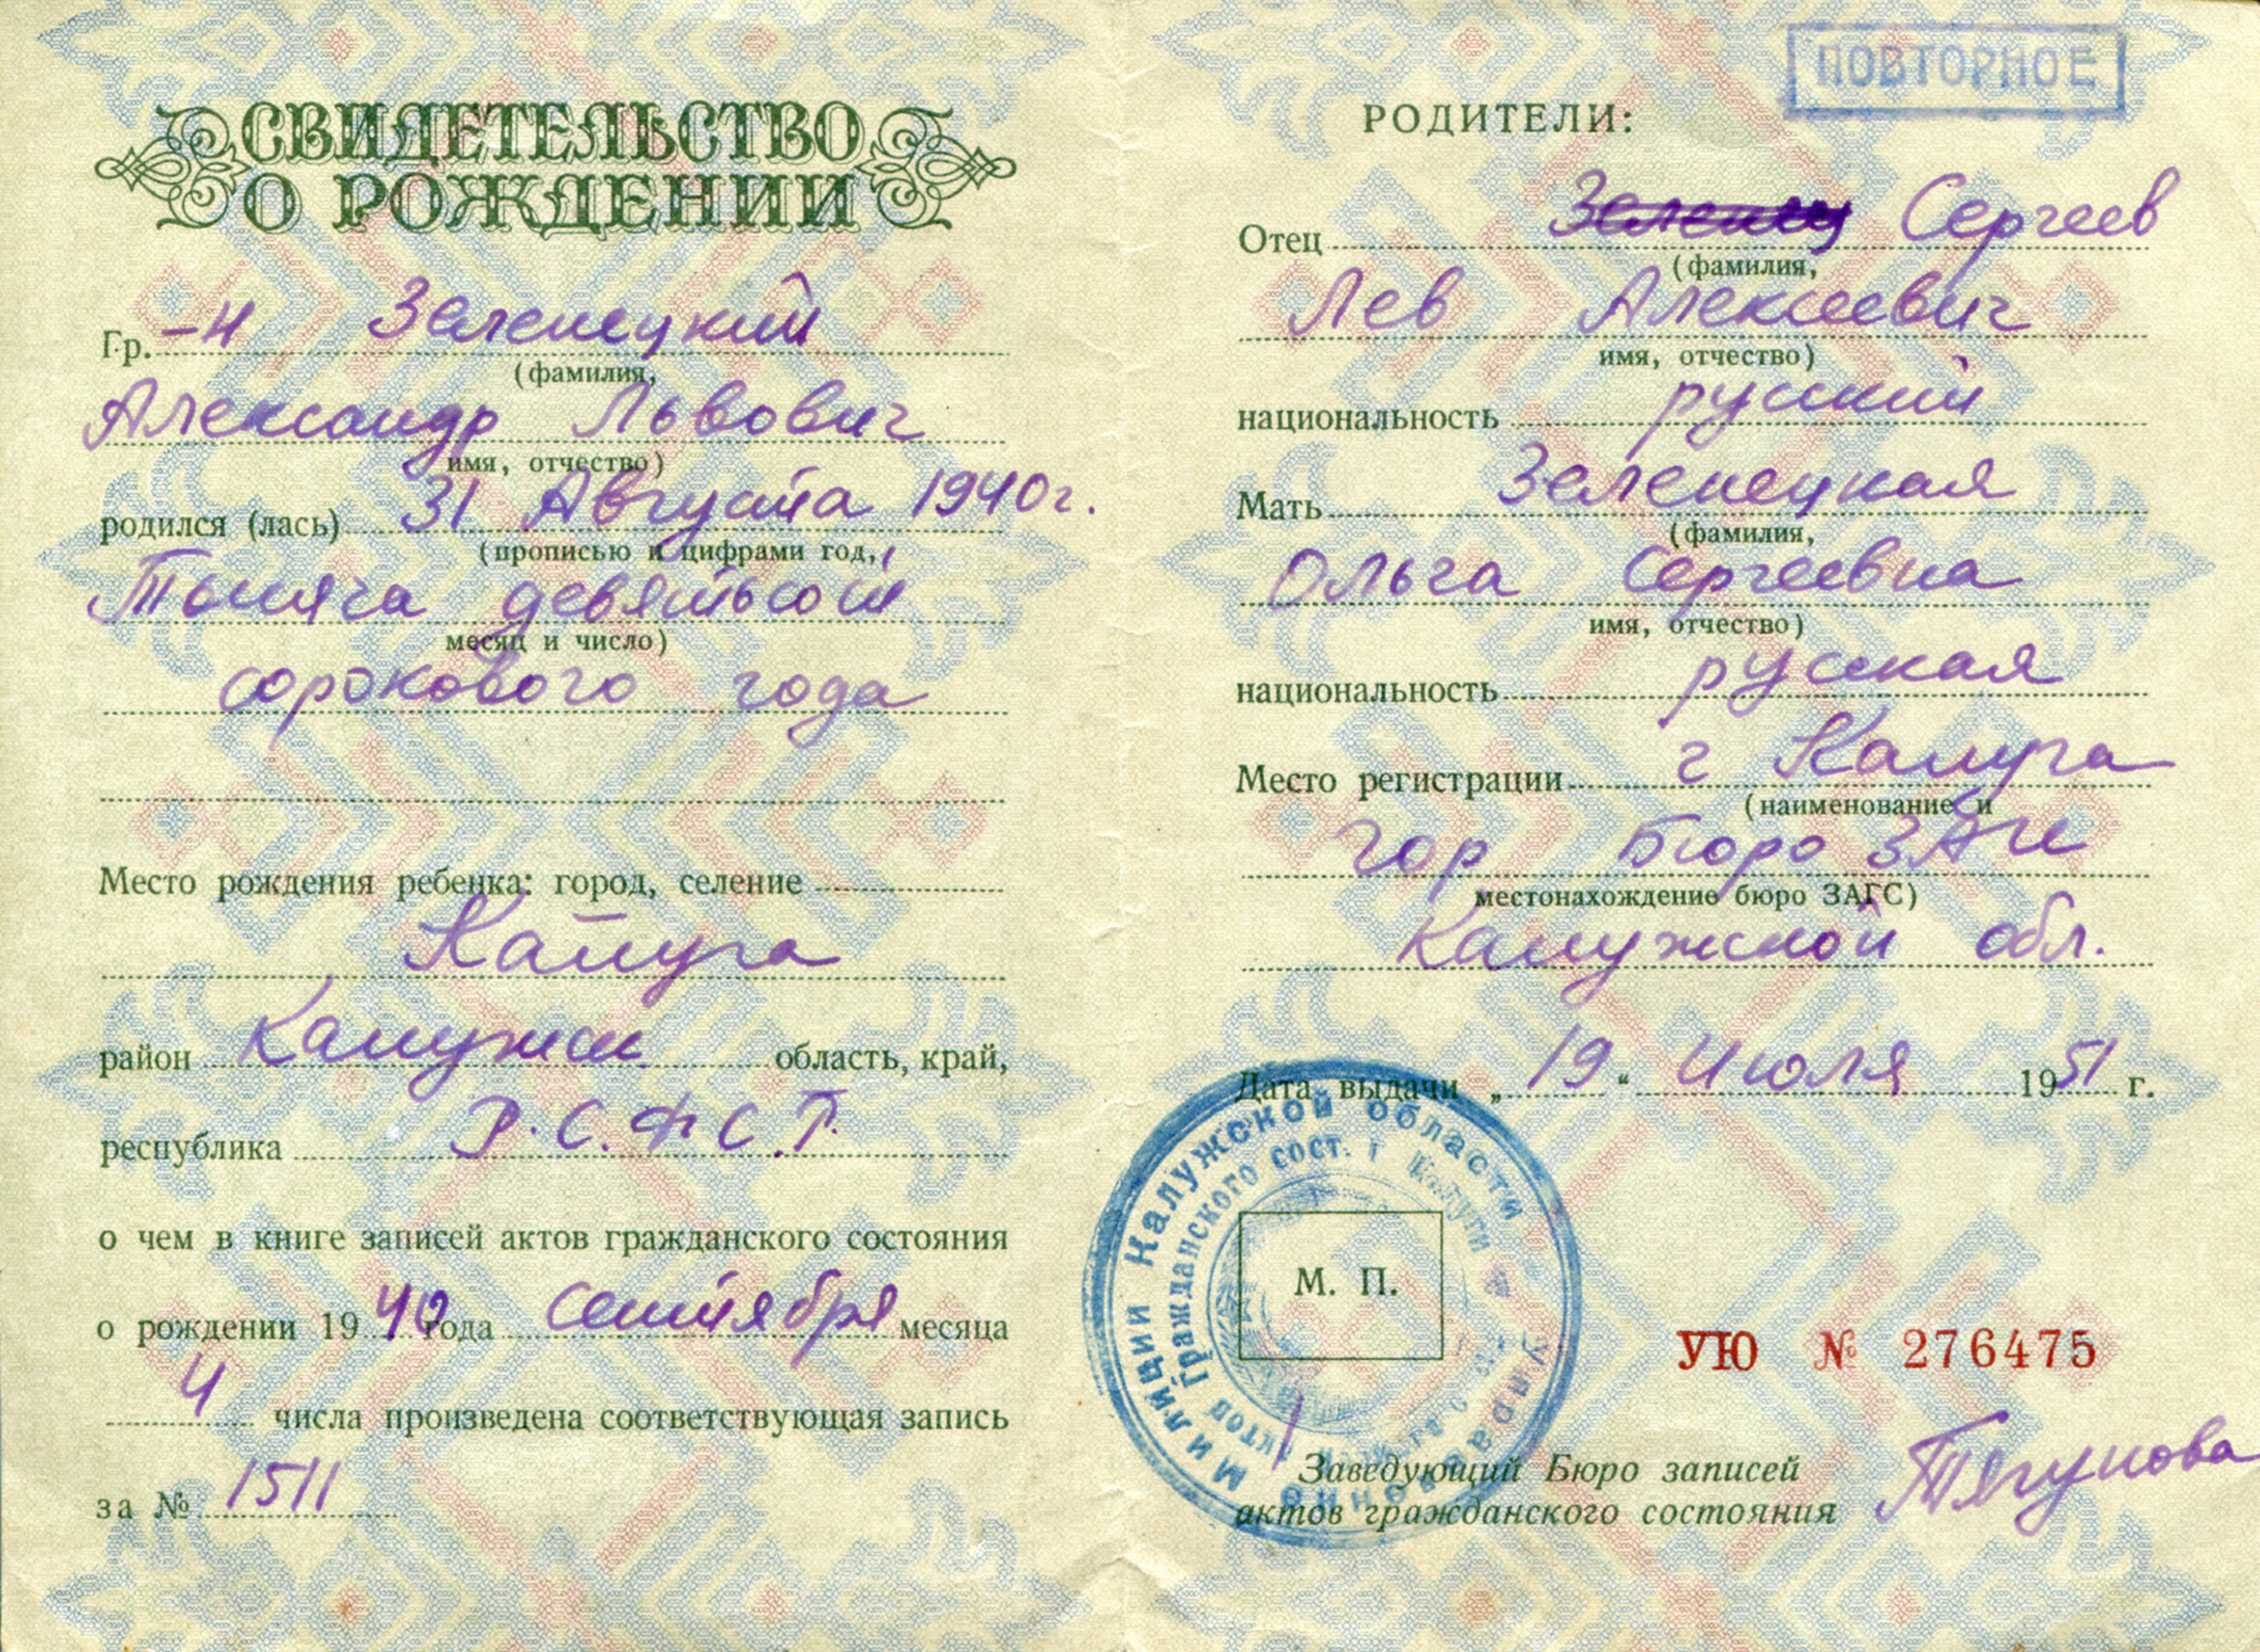 СВИДЕТЕЛЬСТВО
О РОЖДЕНИИ
Гр. -н Зеленецкий
(фамилия,
Александр Львович
имя, отчество)
родился (лась) 31 Августа 1940 г.
(прописью и цифрами год,
Тысяча девятьсот
месяц и число)
сорокового года
Место рождения ребенка: город, селение
Калуга
район Калужск. область, край,
республика Р.С.Ф.С.Р.
о чем в книге записей актов гражданского состояния
о рождении 1940 года сентября месяца
4 числа произведена соответствующая запись
за № 1511
ПОВТОРНОЕ
РОДИТЕЛИ:
Отец Зеленец Сергеев
(фамилия,
Лев Алексеевич
имя, отчество)
национальность русский
Мать Зеленецкая
(фамилия,
Ольга Сергеевна
имя, отчество)
национальность русская
Место регистрации г Калуга
(наименование и
гор Бюро ЗАГС
местонахождение бюро ЗАГС)
Калужской обл.
Дата выдачи „19“ Июля 1951 г.
Управление Милиции Калужской области
актов Гражданского сост. г Калуги
М. П.
УЮ № 276475
Заведующий Бюро записей
актов гражданского состояния Тягунова